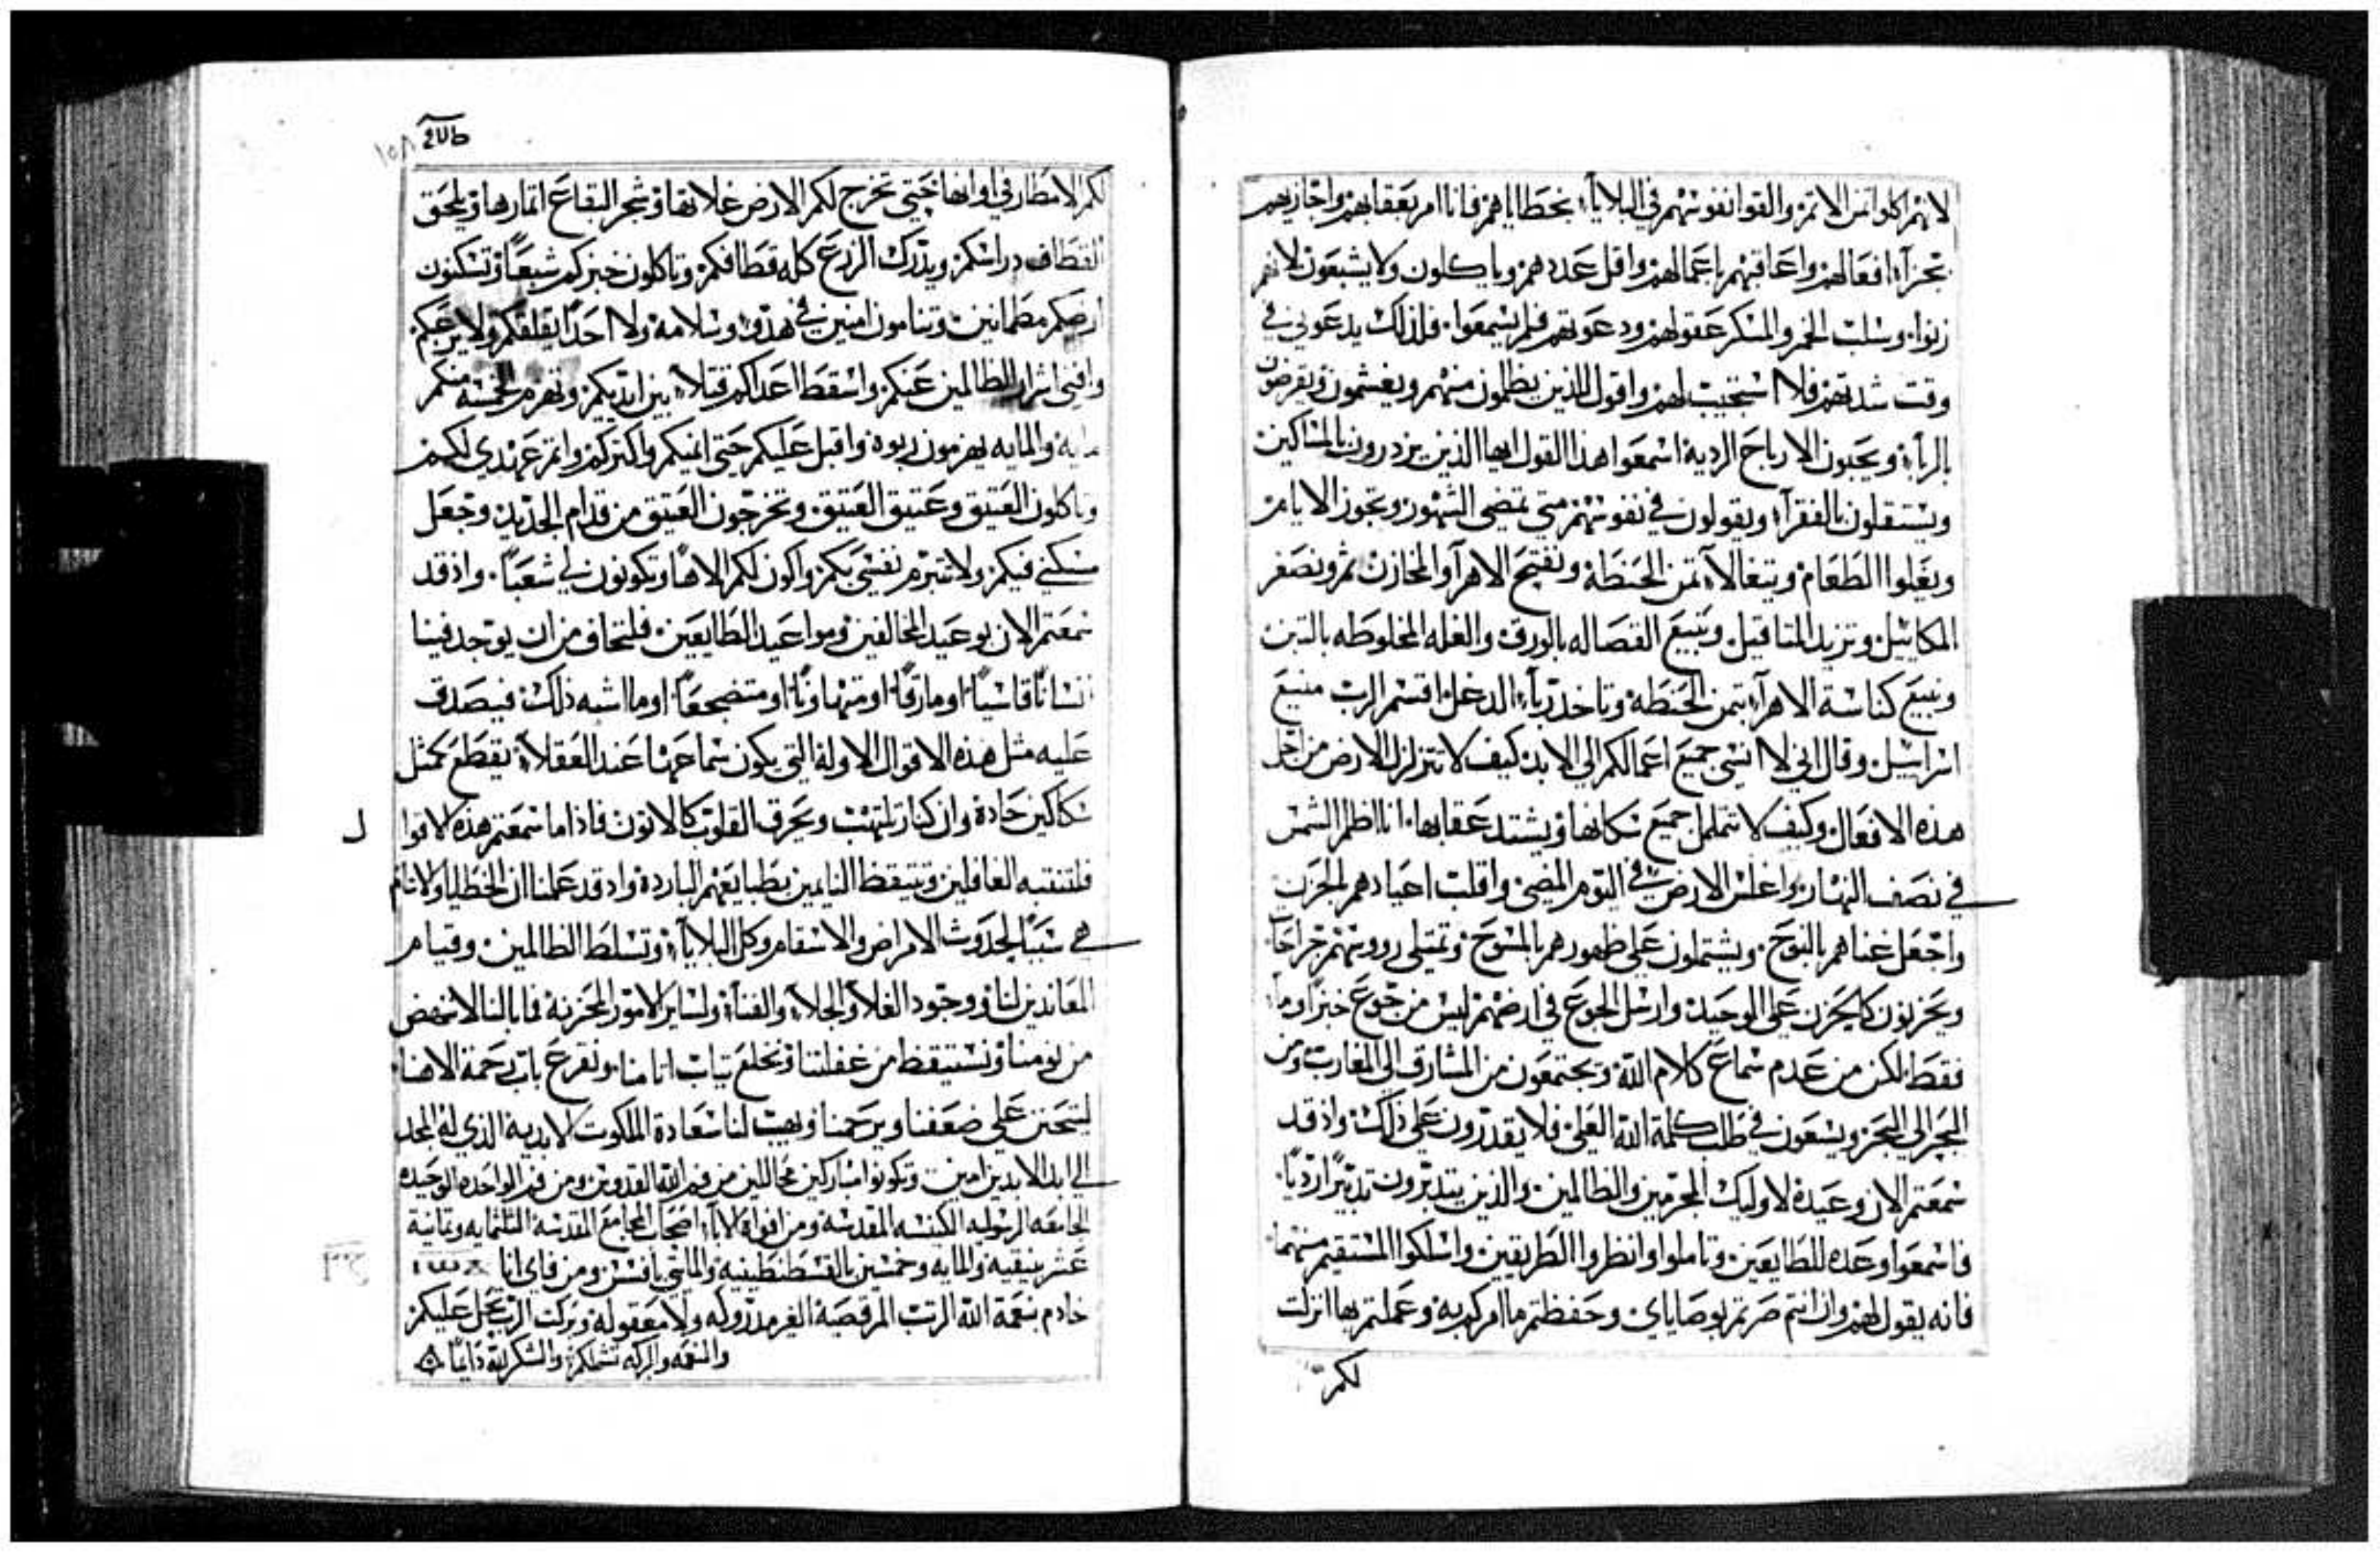 لانهم اكلوا ثمن الاثم والقوا نفوسهم في البلايآء بخطاياهم فانا امر بعقابهم واجازيهم
بجزآء افعالهم واعاقبهم باعمالهم واقل عددهم وياكلون ولا يشبعون لانهم
زنوا وسلبت الخمر والمسكر عقولهم ودعوتهم فلم يسمعوا فلذلك يدعوني في
وقت شدتهم فلا استجيب لهم واقول للذين يظلمون منهم ويغشمون ويقرضون
بالربآء ويحبون الارباح الردية اسمعوا هذا القول ايها الذين يزدرون بالمساكين
ويستقلون بالفقرآء ويقولون في نفوسهم متى تمضي الشهور وتجوز الايام
ويغلوا الطعام ويتغالآ ثمن الحنطة ونفتح الاهرآ والمخازن ثم ونصغر
المكاييل ونزيد المثاقيل ونبيع القصاله بالورق والغله المخلوطه بالتبن
ونبيع كناسة الاهرآء بثمن الحنطة وناخذ ربآء الدغل اقسم الرب منيع
اسراييل وقال اني لا انسى جميع اعمالكم الى الابد كيف لا تتزلزل الارض من اجل
هذه الافعال وكيف لا تتململ جميع سكانها ويشتد عقابها انا اظلم الشمس
في نصف النهار واغلس الارض في اليوم المضي واقلب اعيادهم للحزن
واجعل غناهم بالنوح ويشتملون على ظهورهم بالمسوح وتمتلى رووسهم جراحآ
ويحزنون كالحزن على الوحيد وارسل الجوع في ارضهم ليس من جوع خبز او مآء
فقط لكن من عدم سماع كلام الله ويجتمعون من المشارق الى المغارب ومن
البحر الى البحر ويسعون في طلب كلمة الله العلي فلا يقدرون على ذلك واذ قد
سمعتم الان وعيده لاوليك المجرمين والظالمين والذين يتدبرون تدبيرًا رديًا
فاسمعوا وعده للطايعين وتاملوا وانظروا الطريقين واسلكوا المستقيم منهما
فانه يقول لهم وان انتم صرتم بوصاياي وحفظتم ما امركم به وعملتم بها انزلت
لكم
١٥٨
لكم الامطار في اوانها حتى تخرج لكم الارض غلاتها وشجر البقاع اثمارها ويلحق
القطاف دراسكم ويدرك الزرع كله قطافكم وتاكلون خبزكم شبعًا وتسكنون
ارضكم مطمانين وتنامون امنين في هدوء وسلامه ولا احدًا يقلقكم ولا يرعبكم
وافني اشرار الظالمين عنكم واسقط اعداكم قتلاء بين ايديكم وتهزم الخمسه منكم
مايه والمايه يهزمون ربوه واقبل عليكم حتى انميكم واكثركم واتم عهدي لكم
وتاكلون العتيق وعتيق العتيق وتخرجون العتيق من قدام الجديد وجعل
مسكني فيكم ولا تتبرم نفسي بكم واكون لكم الاهًا وتكونون لي شعبًا واذ قد
سمعتم الان بوعيد المخالفين ومواعيد الطايعين فلتخاف من ان يوجد فينا
انسانًا قاسيًا او مارقًا او متهاونًا او متضجعًا او ما اشبه ذلك فيصدق
عليه مثل هذه الاقوال الاوله التي يكون سماعها عند العقلآء تقطع كمثل
سكاكين حادة وان كنار تلتهب وتحرق القلوب كالاتون فاذا ما سمعتم هذه الاقوا
ل
فلتنتبه الغافلين وتتيقظ النايمين بطبايعهم الباردة واذ قد علمنا ان الخطايا والاثام
هي سببًا لحدوث الامراض والاسقام وكل البلايآء وتسلط الظالمين وقيام
المعاندين لنا ووجود الغلآء والجلآء والفنآء ولساير الامور المحزنه فما بالنا لا ننهض
من نومنا ونستيقظ من غفلتنا ونخلع ثياب اثامنا ونقرع باب رحمة الاهنا
ليتحنن على ضعفنا ويرحمنا ويهب لنا سعادة الملكوت الابديه الذي له المجد
الى ابد الابدين امين وتكونوا مباركين محاللين من فم الله القدوس ومن فم الواحده الوحيده
الجامعه الرسوليه الكنيسه المقدسه ومن افواه الابآء اصحاب المجامع المقدسه الثلثمايه وثمانية
عشر بنيقيه والمايه وخمسين بالقسطنطينيه والمايتي بافسس ومن فاي انا
خادم بنعمة الله الرتب المرقصية الغير مدروكه ولا معقوله وبركت الرب تحل عليكم
والنعمه والبركه تشملكم والشكر لله دايمًا